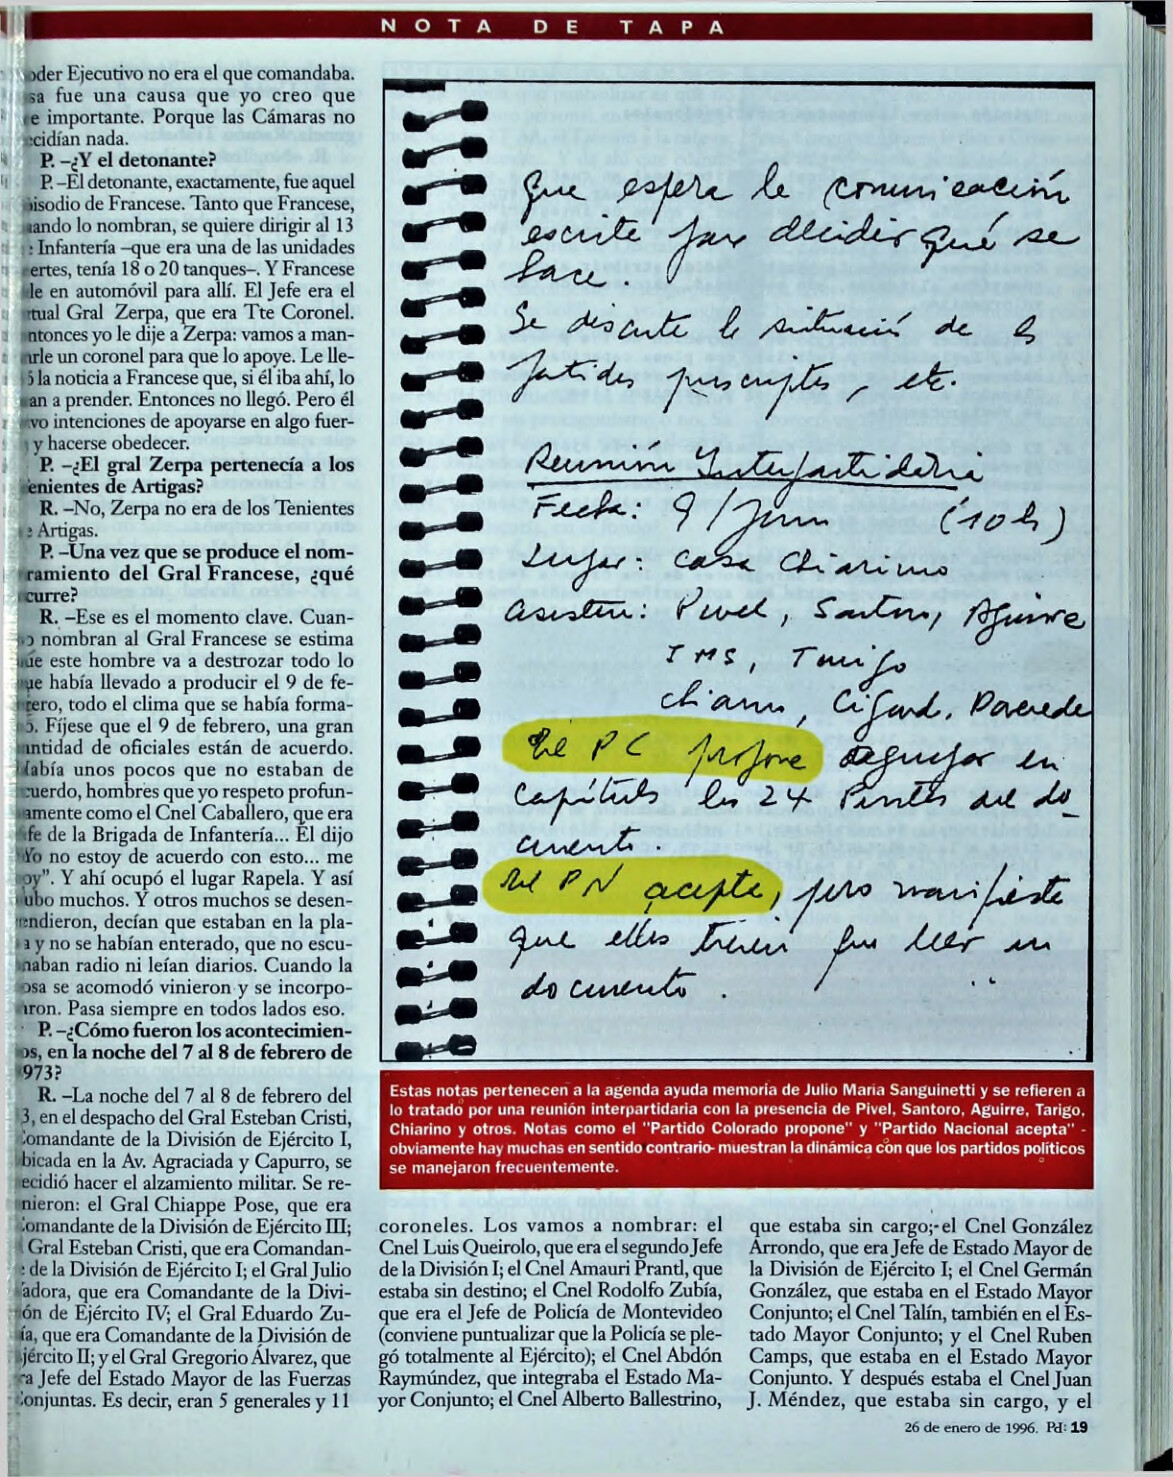 NOTA DE TAPA
oder Ejecutivo no era el que comandaba.
sa fue una causa que yo creo que
e importante. Porque las Cámaras no
cidían nada.
P. –¿Y el detonante?
P. –El detonante, exactamente, fue aquel
isodio de Francese. Tanto que Francese,
ando lo nombran, se quiere dirigir al 13
: Infantería –que era una de las unidades
ertes, tenía 18 o 20 tanques–. Y Francese
le en automóvil para allí. El Jefe era el
tual Gral Zerpa, que era Tte Coronel.
ntonces yo le dije a Zerpa: vamos a man-
rle un coronel para que lo apoye. Le lle-
ó la noticia a Francese que, si él iba ahí, lo
an a prender. Entonces no llegó. Pero él
vo intenciones de apoyarse en algo fuer-
y hacerse obedecer.
P. –¿El gral Zerpa pertenecía a los
enientes de Artigas?
R. –No, Zerpa no era de los Tenientes
e Artigas.
P. –Una vez que se produce el nom-
ramiento del Gral Francese, ¿qué
curre?
R. –Ese es el momento clave. Cuan-
o nombran al Gral Francese se estima
ue este hombre va a destrozar todo lo
ue había llevado a producir el 9 de fe-
rero, todo el clima que se había forma-
o. Fíjese que el 9 de febrero, una gran
antidad de oficiales están de acuerdo.
Había unos pocos que no estaban de
cuerdo, hombres que yo respeto profun-
amente como el Cnel Caballero, que era
fe de la Brigada de Infantería... Él dijo
"Yo no estoy de acuerdo con esto... me
oy". Y ahí ocupó el lugar Rapela. Y así
ubo muchos. Y otros muchos se desen-
endieron, decían que estaban en la pla-
a y no se habían enterado, que no escu-
naban radio ni leían diarios. Cuando la
osa se acomodó vinieron y se incorpo-
ron. Pasa siempre en todos lados eso.
P. –¿Cómo fueron los acontecimien-
os, en la noche del 7 al 8 de febrero de
973?
R. –La noche del 7 al 8 de febrero del
3, en el despacho del Gral Esteban Cristi,
Comandante de la División de Ejército I,
bicada en la Av. Agraciada y Capurro, se
ecidió hacer el alzamiento militar. Se re-
nieron: el Gral Chiappe Pose, que era
Comandante de la División de Ejército III;
Gral Esteban Cristi, que era Comandan-
: de la División de Ejército I; el Gral Julio
adora, que era Comandante de la Divi-
ón de Ejército IV; el Gral Eduardo Zu-
ía, que era Comandante de la División de
jército II; y el Gral Gregorio Álvarez, que
a Jefe del Estado Mayor de las Fuerzas
Conjuntas. Es decir, eran 5 generales y 11
que espera la comunicación
escrita para decidir qué se
hace.
Se discute la situación de los
partidos proscriptos, etc.
Reunión Interpartidaria
Fecha: 9/Junio (10 h)
Lugar: casa Chiarino
Asisten: Pivel, Santoro, Aguirre
JMS, Tarigo
Chiarino, Cigliuti, Paverede
El PC propone desglosar en
capítulos los 24 Puntos del do-
cumento.
El PN acepta, pero manifiesta
que ellos traían para leer un
documento.
Estas notas pertenecen a la agenda ayuda memoria de Julio María Sanguinetti y se refieren a
lo tratado por una reunión interpartidaria con la presencia de Pivel, Santoro, Aguirre, Tarigo,
Chiarino y otros. Notas como el "Partido Colorado propone" y "Partido Nacional acepta" -
obviamente hay muchas en sentido contrario- muestran la dinámica con que los partidos políticos
se manejaron frecuentemente.
coroneles. Los vamos a nombrar: el
Cnel Luis Queirolo, que era el segundo Jefe
de la División I; el Cnel Amauri Prantl, que
estaba sin destino; el Cnel Rodolfo Zubía,
que era el Jefe de Policía de Montevideo
(conviene puntualizar que la Policía se ple-
gó totalmente al Ejército); el Cnel Abdón
Raymúndez, que integraba el Estado Ma-
yor Conjunto; el Cnel Alberto Ballestrino,
que estaba sin cargo; el Cnel González
Arrondo, que era Jefe de Estado Mayor de
la División de Ejército I; el Cnel Germán
González, que estaba en el Estado Mayor
Conjunto; el Cnel Talín, también en el Es-
tado Mayor Conjunto; y el Cnel Ruben
Camps, que estaba en el Estado Mayor
Conjunto. Y después estaba el Cnel Juan
J. Méndez, que estaba sin cargo, y el
26 de enero de 1996. Pd: 19